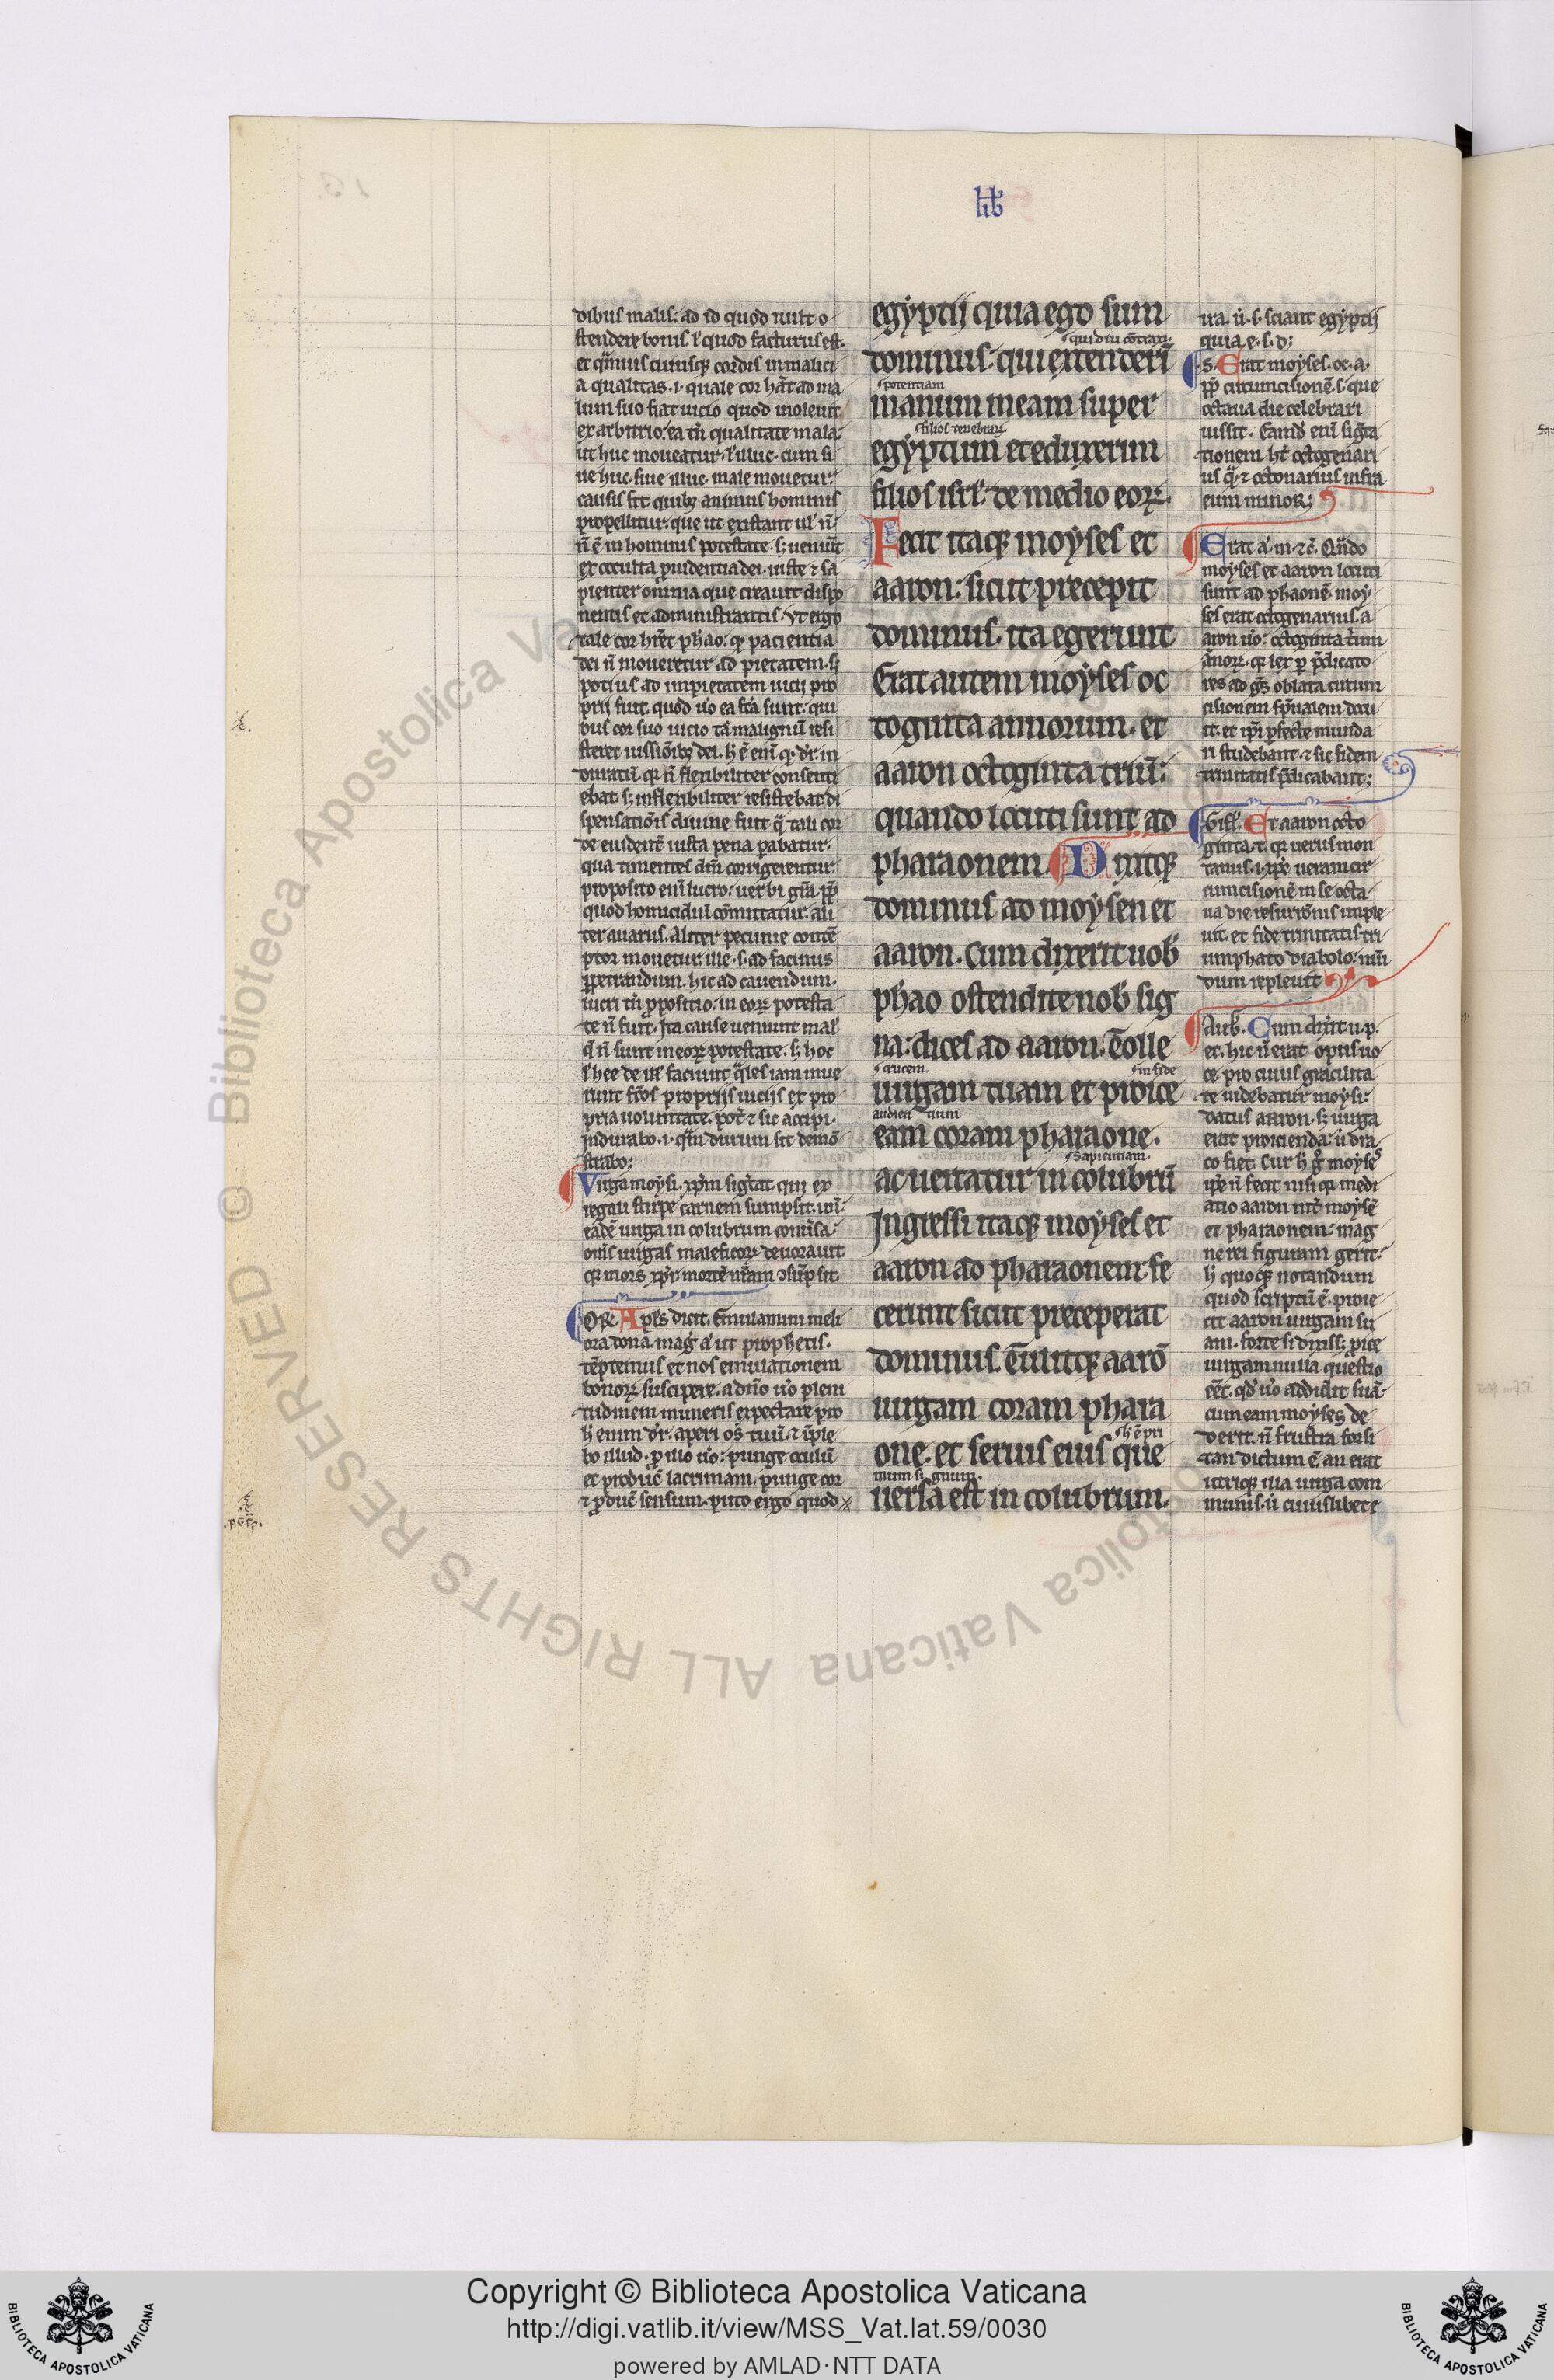 lib
dibus malis: ad id quod uult o
stendere bonis. l' quod facturus est.
et qͣmuis cuiusqꝫ cordis in malici
a qualitas .i. quale cor hāt ad ma
lum suo fiat uicio quod inoleuit
ex arbitrio: ea tn̄ qualitate mala:
ut huc moueatur l' illuc. cum si
ue huc siue illuc male mouetur:
causis fit quibꝫ animus hominis
propellitur. que ut existant ul' n̄:
n̄ ē in hominis potestate. sꝫ ueniūt
ex occulta ꝓuidentia dei. iuste ⁊ sa
pienter omnia que creauit dispo
nentis et administrantis. Vt ergo
tale cor hr̄et phao: qꝫ pacientia
dei n̄ moueretur ad pietatem. sꝫ
potius ad impietatem uicij pro
prij fuit. quod u'o ea fc̄a sunt: qui
bus cor suo uicio tā malignū resi
steret iussiōibꝫ dei. h̄ ē eni qꝫ dr̄. in
duratū. qꝫ n̄ flexibiliter consenti
ebat. sꝫ inflexibiliter resistebat. di
spensatiōis diuine fuit qͣ tali cor
de euident' iusta pena ꝑabatur:
qua timentes dm̄ corrigerentur.
proposito eni lucro: uerbi gr̄a. ꝓp
quod homicidiū cōmittatur. ali
ter auarus. aliter pecunie contē
ptor mouetur. ille .s. ad facinus
ꝑpetrandum. hic ad cauendum.
lucri tn̄ ꝓpositio: in eoꝝ potesta
te n̄ fuit. Ita cause ueniunt mal'
q̄ n̄ sunt in eoꝝ potestate. sꝫ hoc
l' hee de ill' faciunt qͣles iam inue
runt fc̄os proprijs uicijs ex pro
pria uoluntate. pot' ⁊ sic accipi.
Indurabo .i. qͣm durum sit demō
strabo;
Virga moysi. xp̄m sigͣt. qui ex
regali stirpe carnem sumpsit. un̄
eadē uirga in colubrum conuͥsa:
om̄s uirgas maleficoꝝ deuorauit
qꝫ mors xp̄i mortē nr̄am ꝯsūpsit.
OR. Apl's dicit. Emulamini meli
ora dona. mag' a' ut prophetis.
tēptemus et nos emulationem
bonoꝝ suscipere. a dn̄o u'o pleni
tudinem muneris expectare pro
h̄ enim dr̄. aperi os tuū. ⁊ īple
bo illud. ꝓ illo u'o: punge oculū
et produc lacrimam. punge cor
⁊ ꝓduc sensum. puto ergo quod
egyptij quia ego sum
.s. quidiu cōtraxi.
dominus. qui extenderī
.s. potentiam
manum meam super
.s. filios tenebraꝝ
egyptum et eduxerim
filios isrl'. de medio eoꝝ.
Fecit itaqꝫ moyses et
aaron: sicut precepit
dominus. ita egerunt
Erat autem moyses oc
toginta annorum. et
aaron octoginta triū:
quando locuti sunt ad
pharaonem. Dixitqꝫ
dominus ad moysen et
aaron. Cum dixerit uob'
phao ostendite nob' sig
na: dices ad aaron. Tolle
.s. crucem .s. in fide
uirgam tuam et proice
audien tium
eam coram pharaone.
.s. sapientiam.
ac uertatur in colubrū
Ingressi itaqꝫ moyses et
aaron ad pharaonem: fe
cerunt sicut preceperat
dominus. Tulitqꝫ aarō
uirgam coram phara
.s. h̄ ē pri
one. et seruis eius que
mum signum.
uersa est in colubrum.
ua. ū. s. sciant egyptij
quia e. s. d;
S. Erat moyses. oc. a.
ꝓp circumcisionē .s. que
octaua die celebrari
iussit. Eand' eni sigͣ
tionem ht' octogenari
us qͣ ⁊ octonarius infra
eum minor;
Erat a'. m. ⁊ c̄. Qn̄do
moyses et aaron locuti
sunt ad phaonē. moy
ses erat octogenarius. a
aron u'o: octoginta triū
annoꝝ. qꝫ lex ꝑ p̄dicato
res ad gr̄s oblata circum
cisionem sp̄ualem docu
it. et ip̄i ꝑfecte munda
ri studebant. ⁊ sic fidem
trinitatis p̄dicabant;
Gisl'. Et aaron octo
ginta t. qꝫ uerus mon
tanus .i. xp̄c ueram cir
cumcisionē in se octa
ua die resurrōnis imple
uit. et fide trinitatis tri
umphato diabolo: mū
dum repleuit
Aub'. Cum dixit u. p.
et. hic n̄ erat opus uo
ce. pro cuius gracilita
te uidebatur moysi:
datus aaron. sꝫ uirga
erat proicienda: ū dra
co fiet. Cur h̄ g̊ moyses
ip̄e n̄ fecit nisi qꝫ medi
atio aaron int' moysē
et pharaonem: mag
ne rei figuram gerit.
h̄ quoqꝫ notandum
quod scriptū ē. proie
cit aaron uirgam su
am. forte si dixiss; ꝓice
uirgam nulla questio
eēt. qd' u'o addidit suā.
cum eam moyses de
derit. n̄ frustra forsi
tan dictum ē. an erat
utriqꝫ illa uirga com
munis. ū cuiuslibet e
Copyright © Biblioteca Apostolica Vaticana
http://digi.vatlib.it/view/MSS_Vat.lat.59/0030
powered by AMLAD·NTT DATA
BIBLIOTECA APOSTOLICA VATICANA
BIBLIOTECA APOSTOLICA VATICANA
© Biblioteca Apostolica Vaticana ALL RIGHTS RESERVED